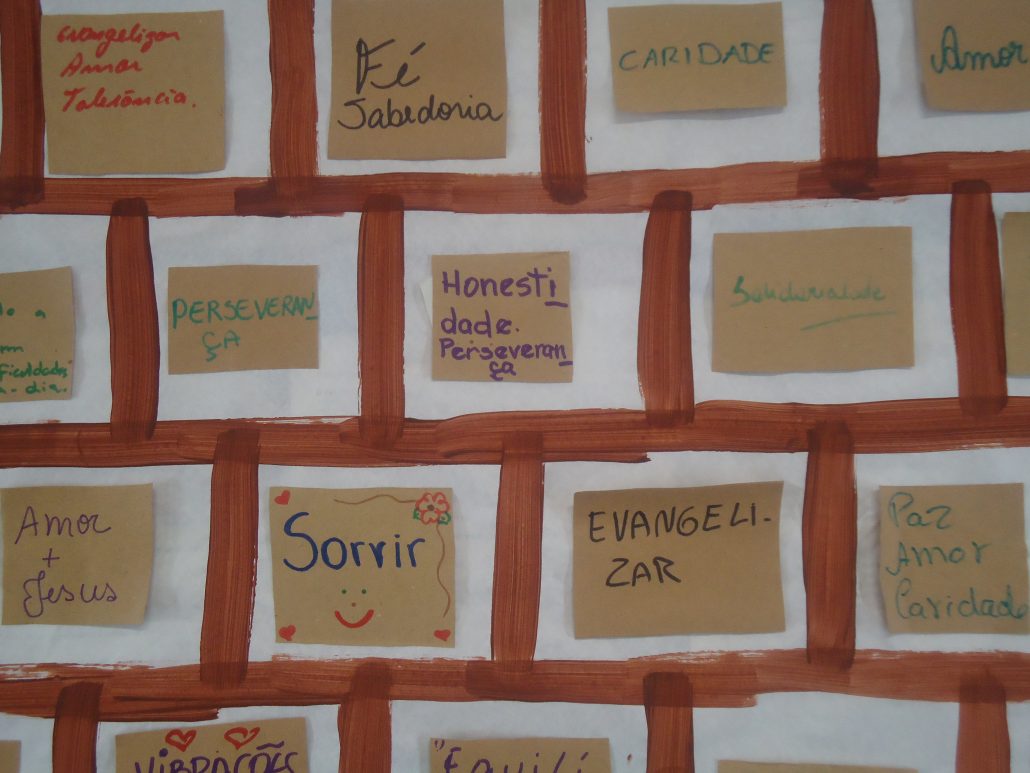 Evangelizar
Amor
Tolerância.
Fé
Sabedoria
CARIDADE
Amor
PERSEVERAN
ÇA
Honesti
dade.
Perseveran
ça
Solidariedade
a
a-dia.
Amor
+
Jesus
Sorrir
EVANGELI-
ZAR
Paz
Amor
Caridade
VIBRAÇÕES
"Equilí